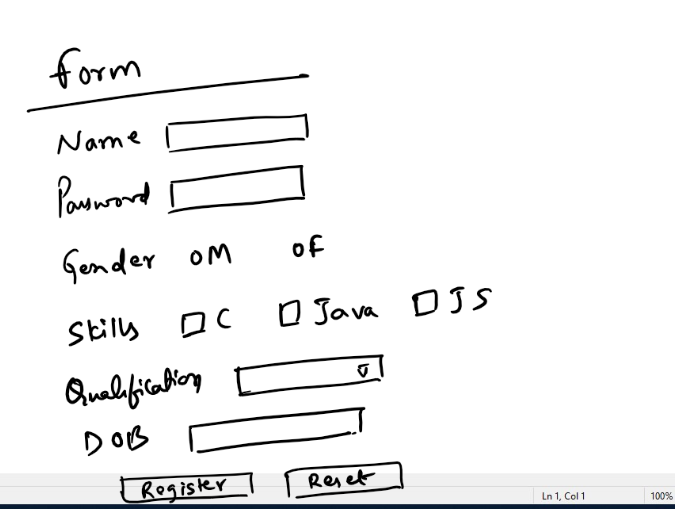 Form
Name
Password
Gender M F
Skills C Java JS
Qualification
DOB
Register Reset
Ln 1, Col 1 100%